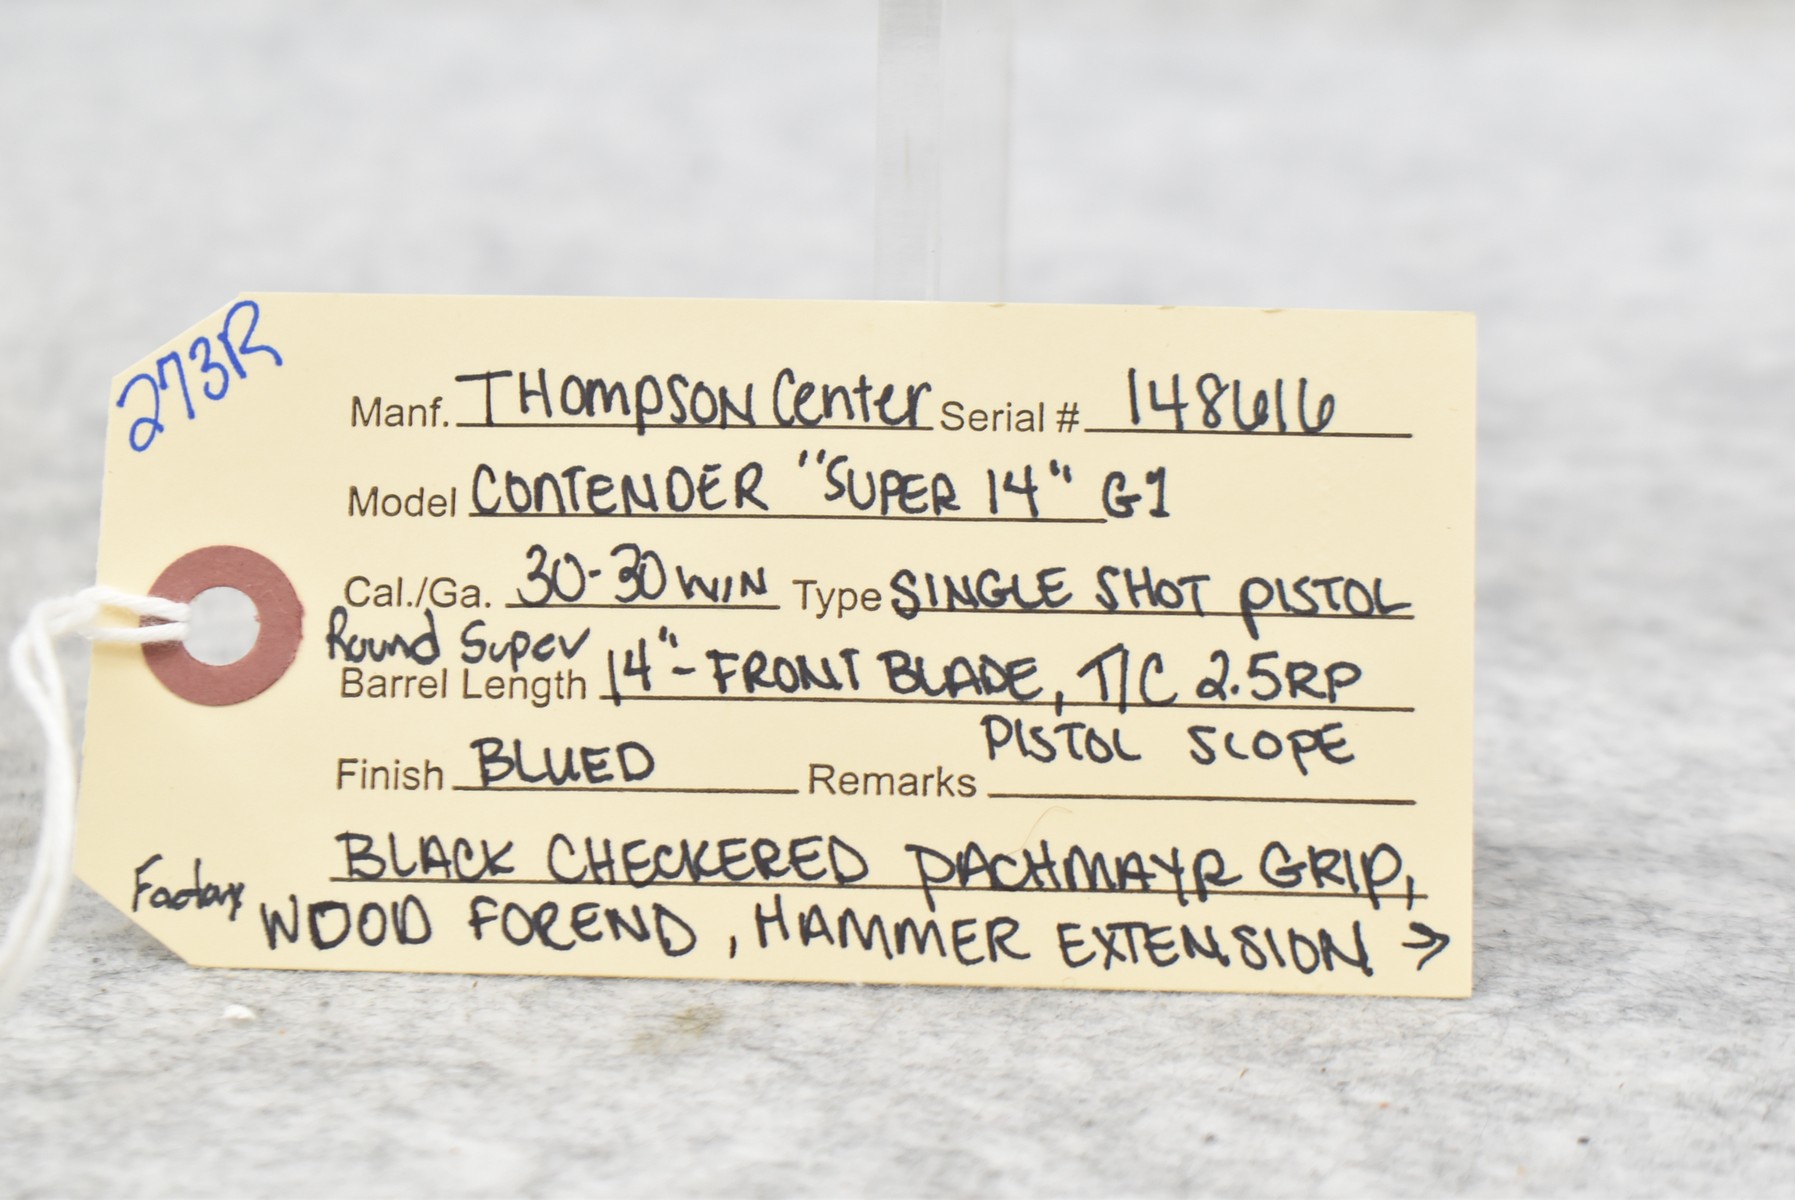 273R
Manf. THOMPSON Center Serial # 148616
Model CONTENDER "SUPER 14" G1
Cal./Ga. 30-30 WIN Type SINGLE SHOT PISTOL
Round Super
Barrel Length 14"- FRONT BLADE, T/C 2.5RP
PISTOL SCOPE
Finish BLUED Remarks
BLACK CHECKERED PACHMAYR GRIP,
Factory WOOD FOREND, HAMMER EXTENSION →